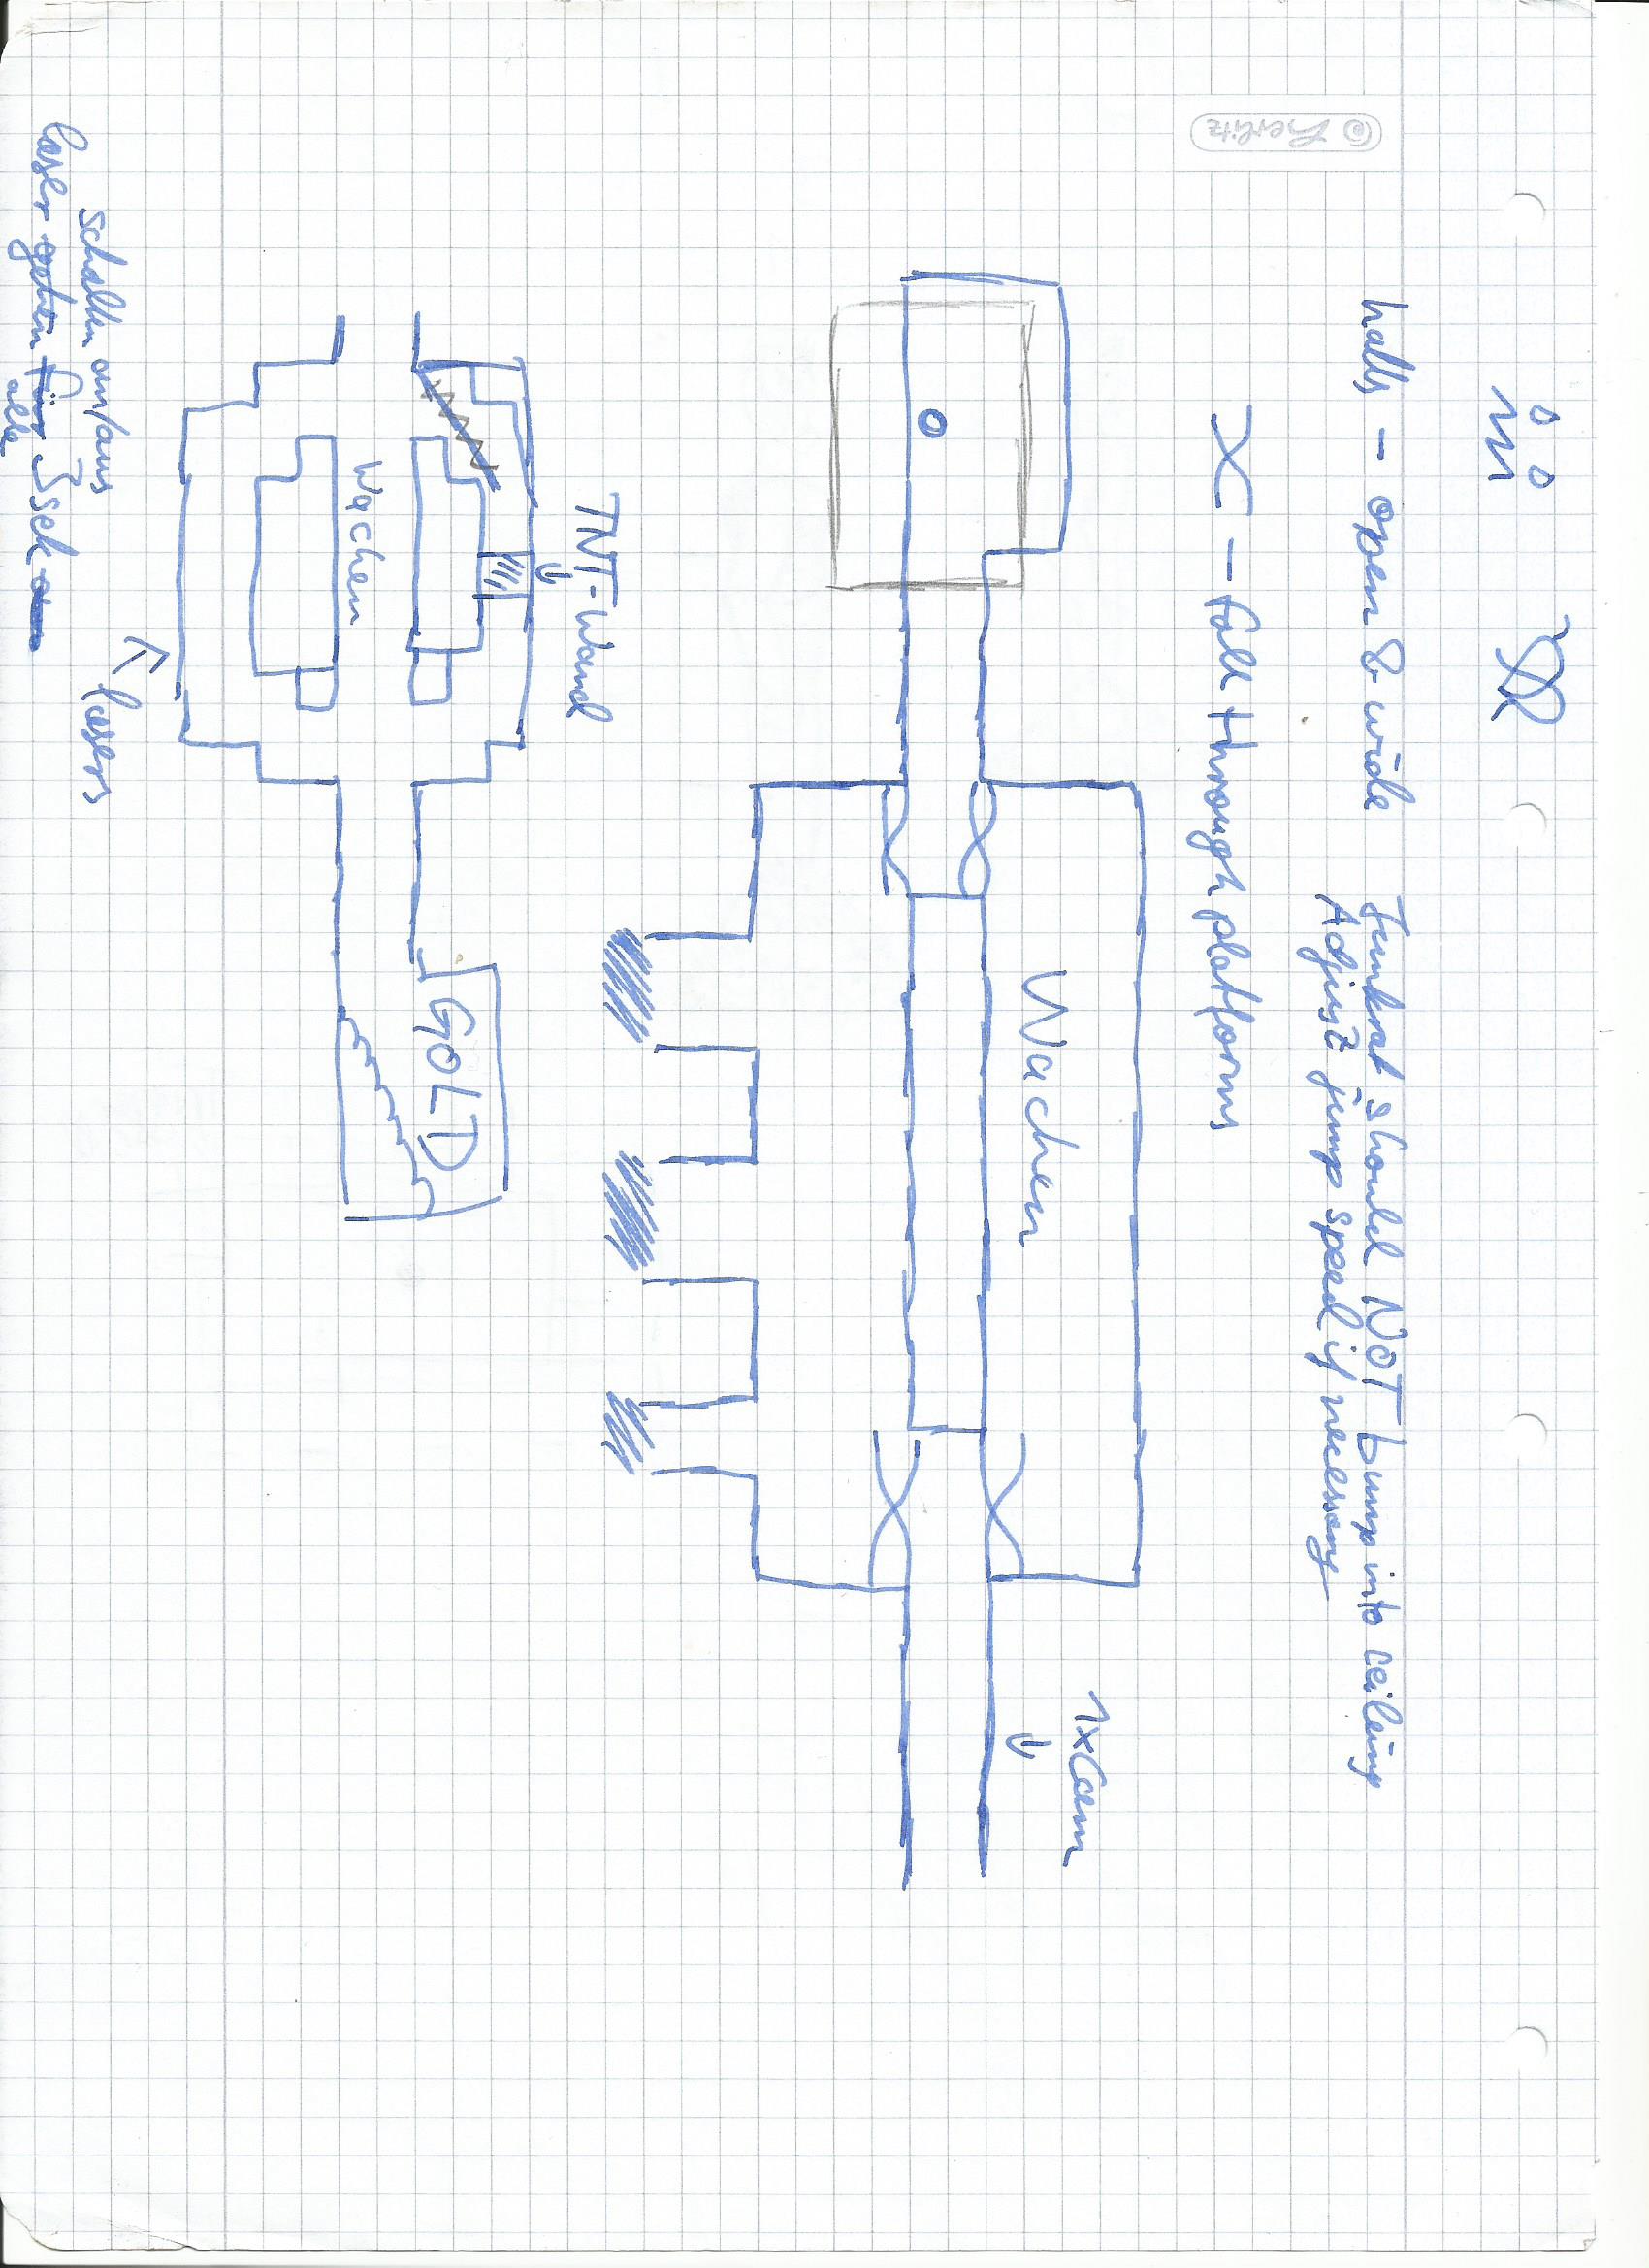 halls - open & wide
Junkrat should NOT bump into ceiling
Adjust jump speed if necessary
X - fall through platforms
1xCam
Wachen
TNT-Wand
Wachen
GOLD
lasers
schalten an/aus
laser gehen für 3sek
alle
© Herlitz